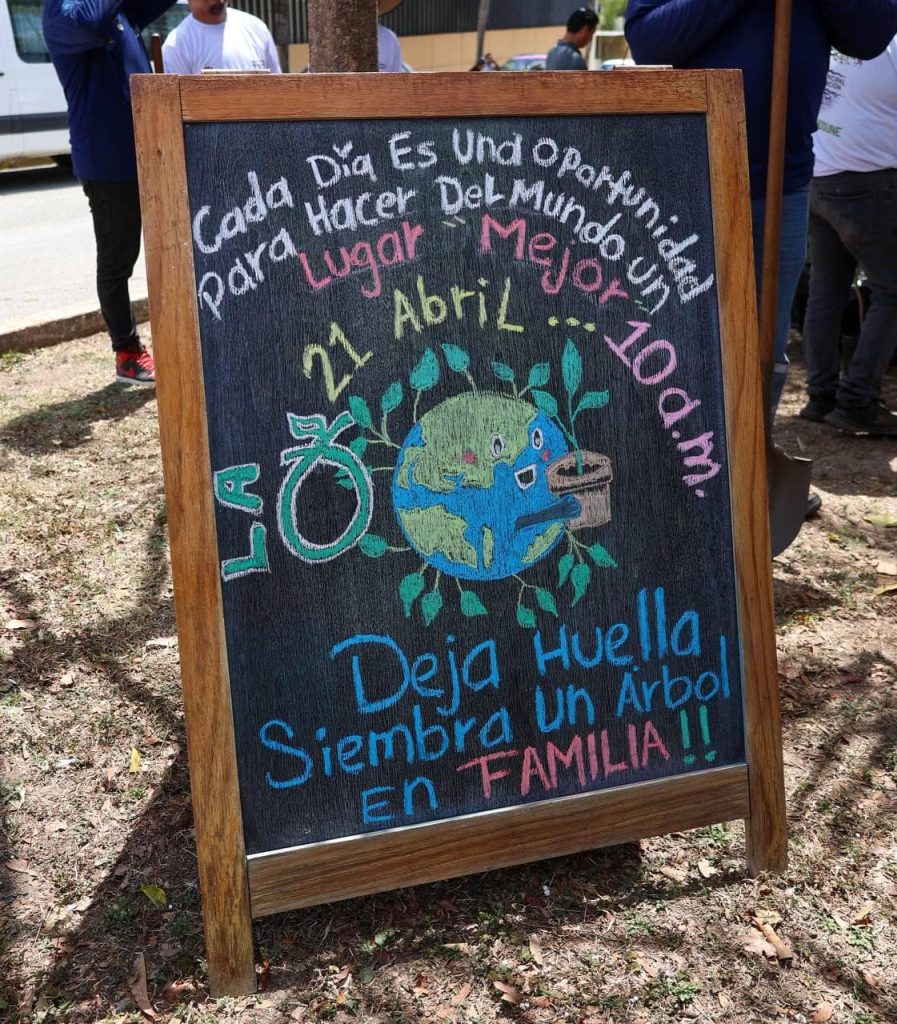 Cada Día Es Una Oportunidad
para Hacer Del Mundo un
Lugar Mejor
21 Abril ... 10 a.m.
LA
Deja Huella
Siembra Un Árbol
en FAMILIA!!